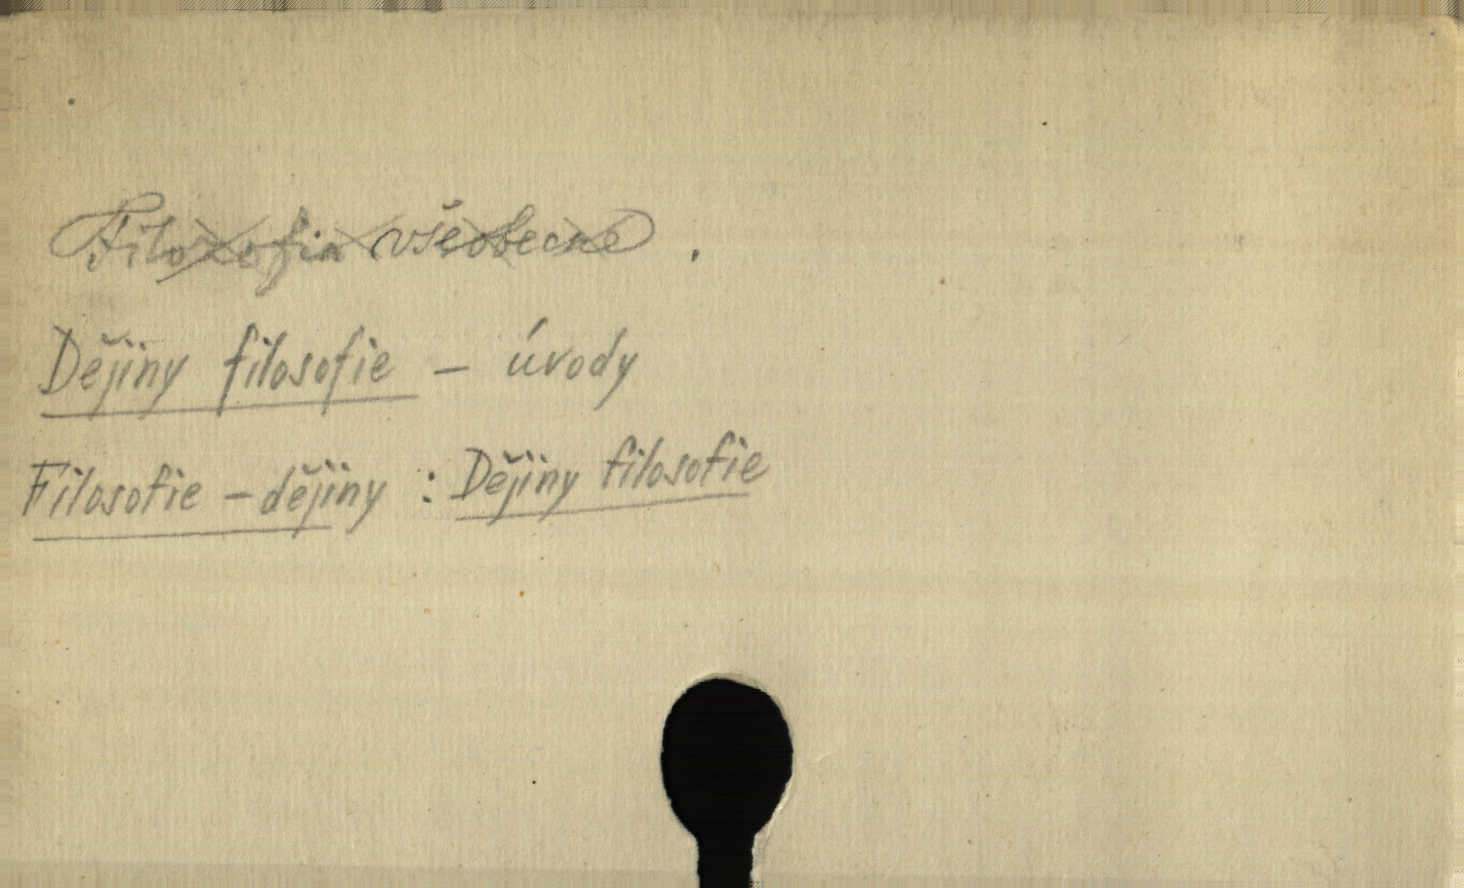 Filozofia všeobecne.
Dějiny filosofie - úvody
Filosofie - dějiny : Dějiny filosofie